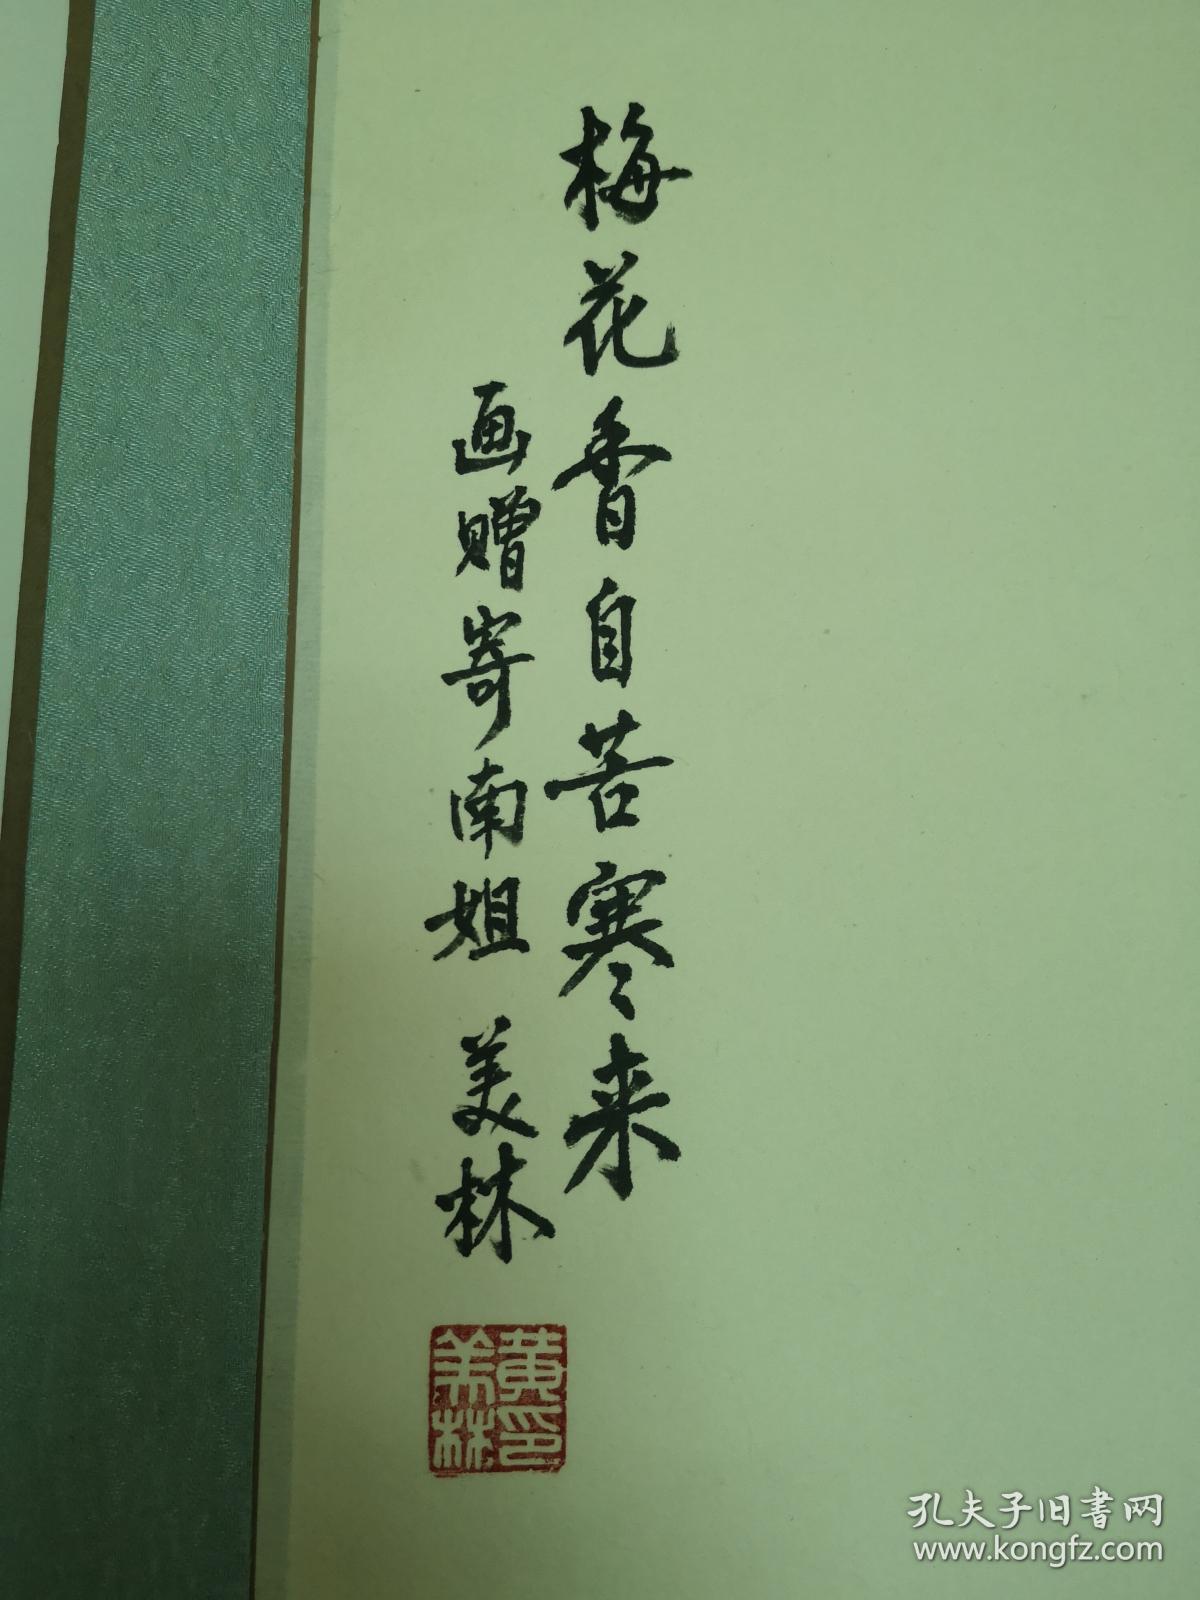 梅花香自苦寒来
画赠寄南姐 美林
黄印
美林
孔夫子旧书网
www.kongfz.com